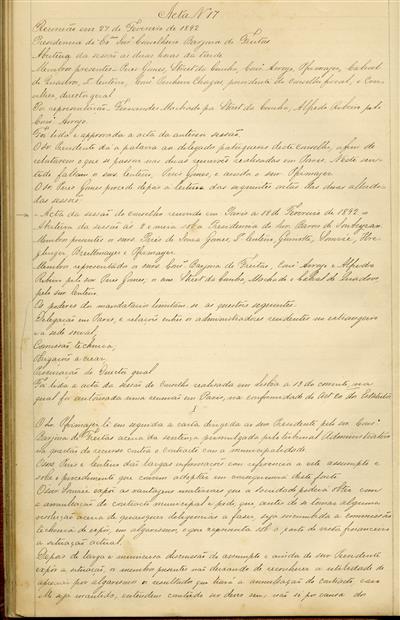 Acta Nº 77
Reunião em 27 de Fevereiro de 1892
Presidencia do Exmo Snr Conselheiro Barjona de Freitas
Abertura da sessão ás duas horas da tarde
Membros presentes Pires Gomes, Street da Cunha, Consº Arroyo, Cabral
de Quadros, L. Centeno, Consº Penheiro Chagas, presidente do conselho fiscal, e
director geral
Por representação: Fernandes Machado por Street da Cunha, Alfredo Ribeiro pelo
Consº Arroyo.
Foi lida e approvada a acta da anterior sessão
O Sr Presidente dá a palavra aos delegados portuguezes deste conselho, a fim de
relatarem o que se passou nas duas reuniões realisadas em Paris. Neste sen-
tido fallam os snrs Centeno, Pires Gomes, e assiste o snr
O Snr Pires Gomes procede depois a leitura das seguintes actas das duas alludi-
das sessões
"Acta da sessão do conselho reunido em Paris a 18 de Fevereiro de 1892 "
Abertura da sessão ás 2 e meia sob a Presidencia do Snr Barão de Soubeyran
Membros presentes os snrs Pires de Sousa Gomes, L. Centeno,
e
Membros representados os snrs Consº Barjona de Freitas, Consº Arroyo e Alfredo
Ribeiro pelo snr Pires Gomes, os snrs Street da Cunha, Machado e Cabral de Quadros
pelo snr Centeno
Os poderes dos mandatarios limitam se as questões seguintes
Delegação em Paris, e relações entre os administradores residentes no estrangeiro
e a sede social,
Comissão technica,
a crear,
do Director geral
Foi lida a acta da sessão do Conselho realisada em Lisboa a 13 do corrente, na
qual foi autorisada uma reunião em Paris, na conformidade do Artº 20 dos Estatutos
I
O Snr lê em seguida a carta dirigida ao snr Presidente pelo snr Consº
Barjona de Freitas acerca da sentença promulgada pelo tribunal Administrativo
na questão do recurso contra o contracto com a municipalidade
Os snrs Pires e Centeno dão largas informações com referencia a este assumpto e
sobre o procedimento que convem adoptar em consequencia deste facto
O Snr expõe as vantagens materiaes que a sociedade poderá obter com
a annullação do contracto municipal e pede que, antes de se tomar alguma
resolução acerca de quaesquer diligencias a fazer, seja incumbida a commissão
technica de expôr, em algarismos, o que representa sob o ponto de vista financeiro
a situação actual.
Depois de larga e minuciosa discussão do assumpto e ouvida do snr Presidente
expôr a situação, os membros presentes não deixando de reconhecer a utilidade de
apreciar por algarismos o resultado que traria a annullação do contracto, caso
seja mantida, entendem contudo ser dever seu, não só por causa dos